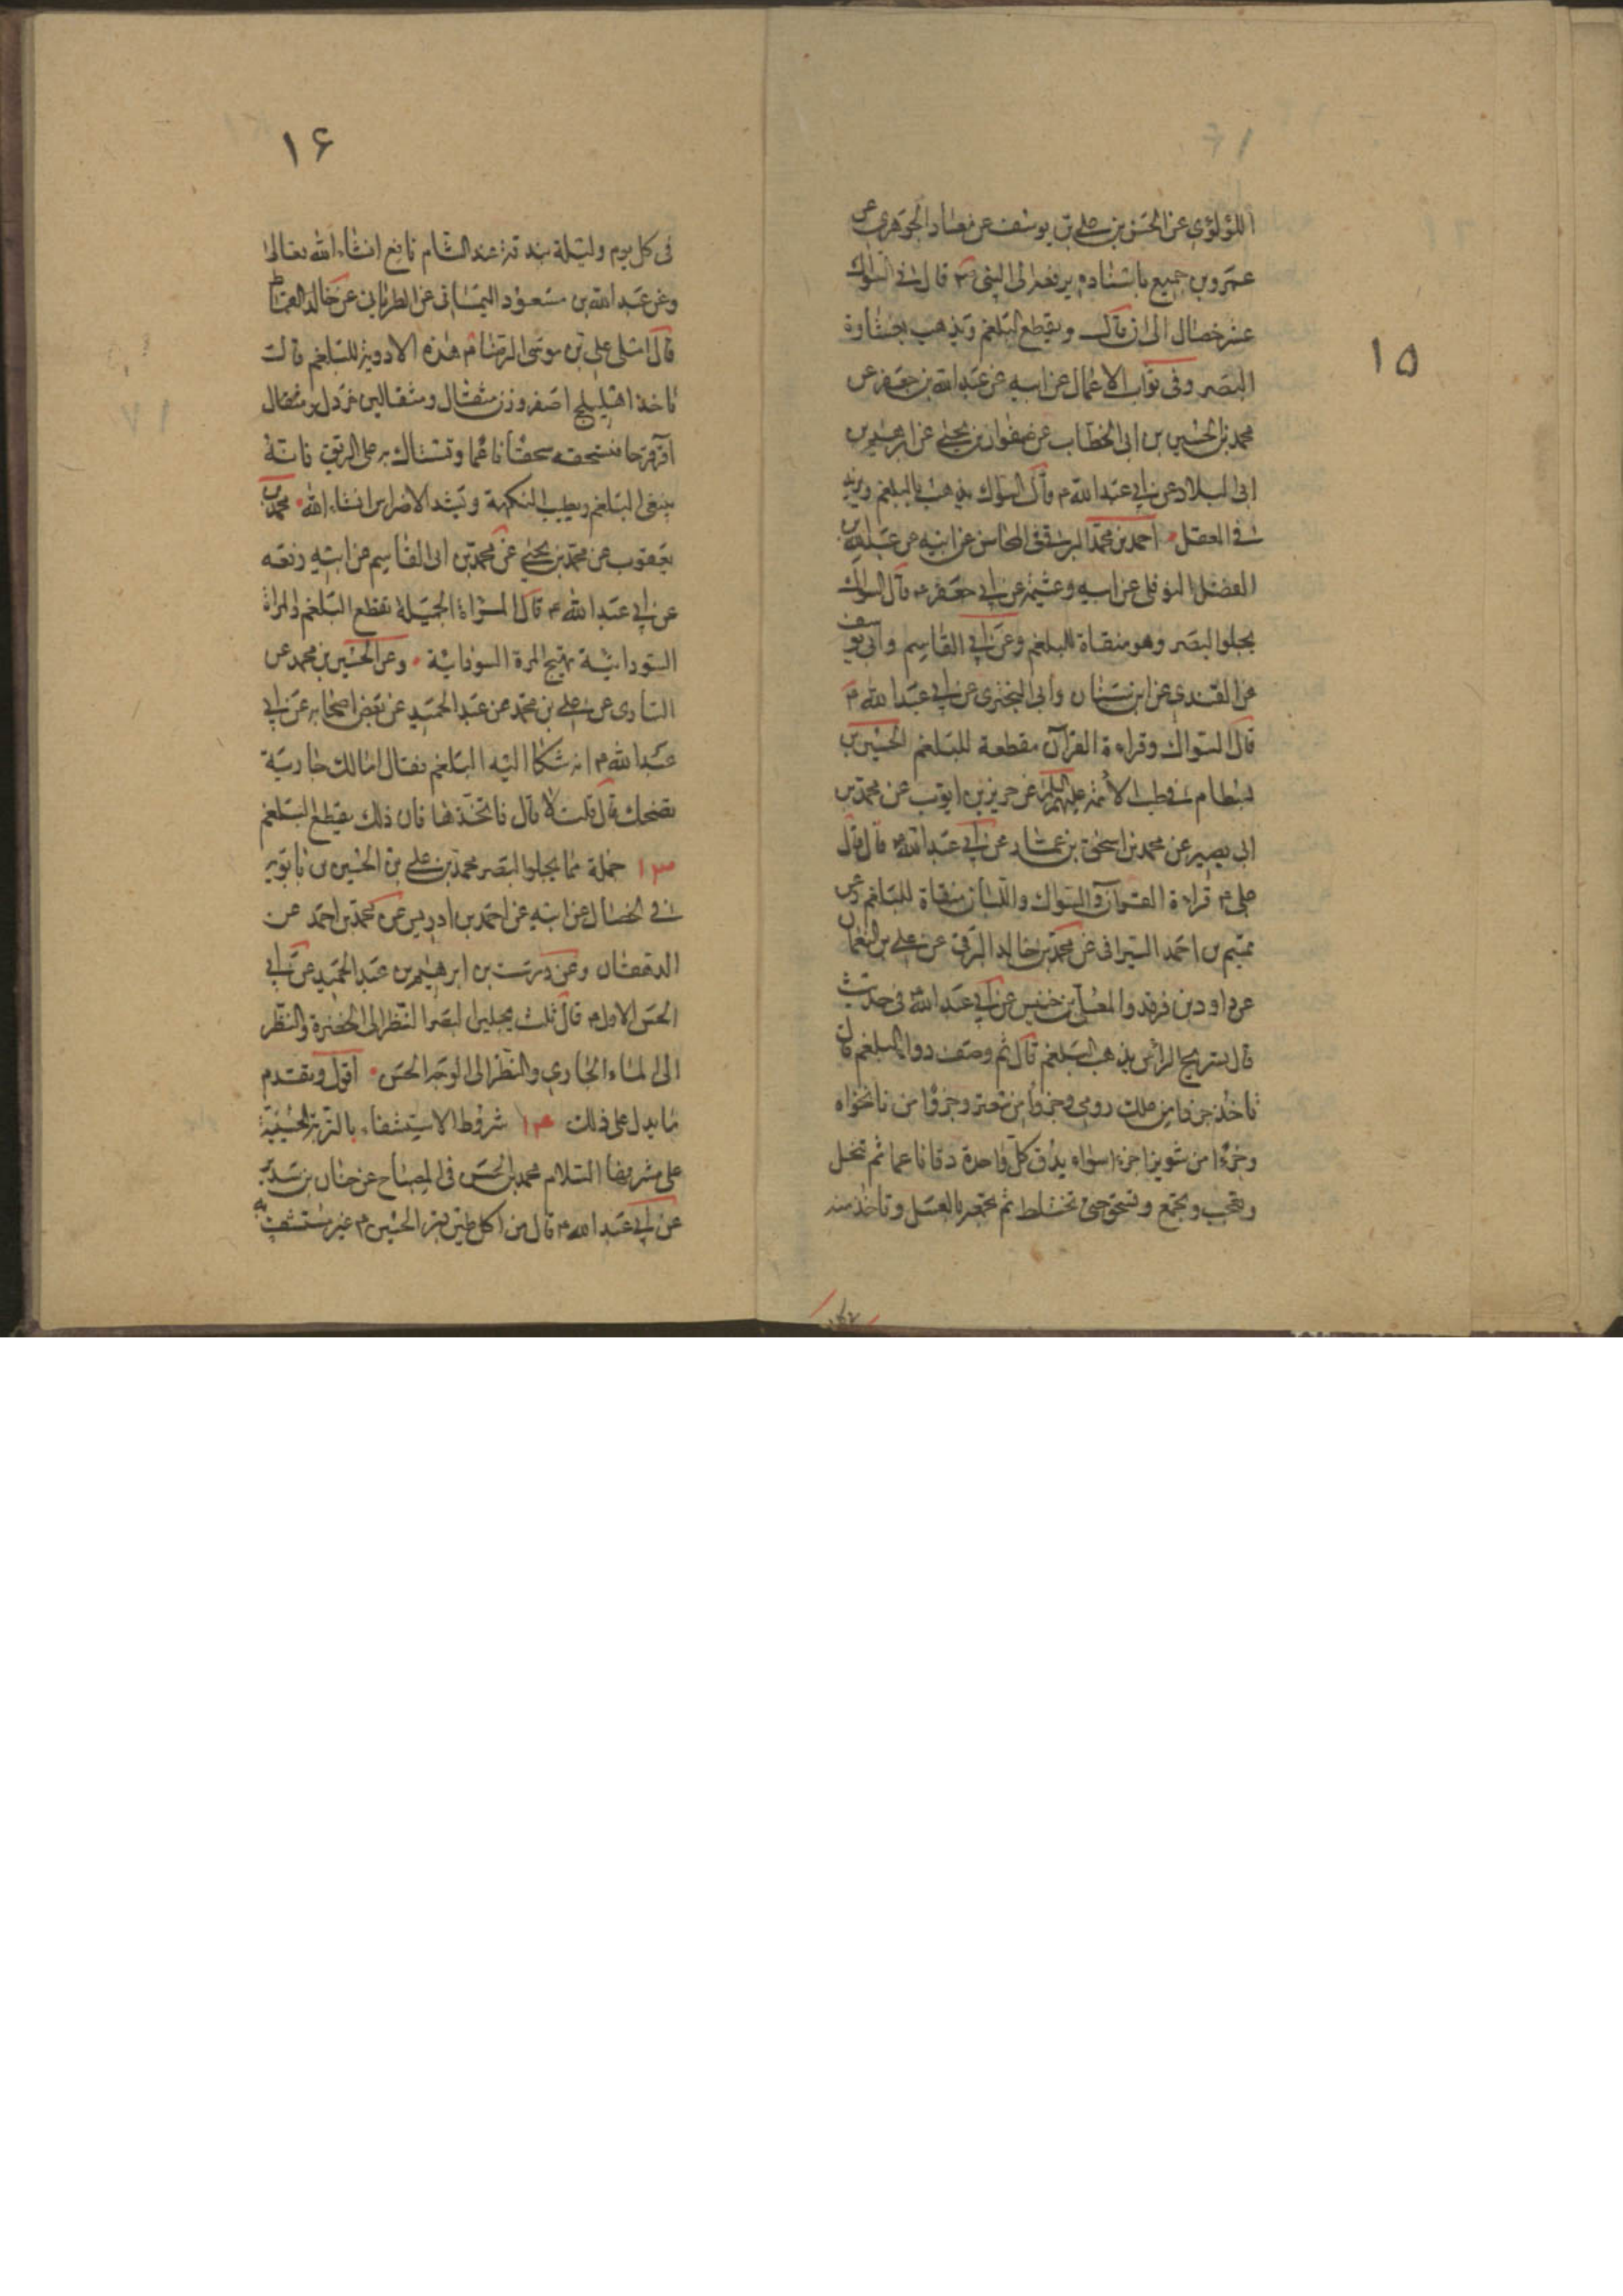 ١٥
اللؤلؤى عن الحسن بن على بن يوسف عن معاذ الجوهرى عن
عمرو بن جميع باسناده يرفعه الى النبى ص قال فى السواك
عشر خصال الى ان قال ويقطع البلغم ويذهب بغشاوة
البصر وفى ثواب الاعمال عن ابيه عن عبدالله بن جعفر عن
محمد بن الحسين بن ابى الخطاب عن صفوان بن يحيى عن ابرهيم بن
ابى البلاد عن ابى عبدالله ع قال السواك يذهب بالبلغم ويزيد
فى العقل احمد بن محمد البرقى فى المحاسن عن ابيه عن عبدالله بن
الفضل النوفلى عن ابيه وعيثمة عن ابى جعفر ع قال السواك
يجلو البصر وهو منقاة للبلغم وعن ابى القاسم وابى يوسف
عن القندى عن ابن سنان وابى البخترى عن ابى عبدالله ع
قال السواك وقراءة القرآن مقطعة للبلغم الحسين بن
بسطام فى طب الائمة عليهم السلم عن حريز بن ايوب عن محمد بن
ابى بصير عن محمد بن اسحق بن عمار عن ابى عبدالله ع قال قال
على ع قراءة القرآن والسواك واللبان منقاة للبلغم وعن
تميم بن احمد السيرافى عن محمد بن خالد البرقى عن على بن النعمان
عن داود بن فرقد والمعلى بن خنيس عن ابى عبدالله ع فى حديث
قال تسريح الراس يذهب البلغم قال ثم وصف دواء البلغم قال
تاخذ جزوا من علك رومى وجزوا من صعتر وجزوا من نانخواه
وجزءا من شونيز اجزاء سواء يدق كل واحدة دقا ناعما ثم تنخل
وتجمع وتسحق حتى تختلط ثم تجمعه بالعسل وتاخذ منه
١۶
فى كل يوم وليلة بندقة عند المنام نافع انشاءالله تعالى
وعن عبدالله بن مسعود اليمانى عن الطريانى عن خالد القماط
قال املى على بن موسى الرضا ع هذه الادوية للبلغم قال
تاخذ اهليلج اصفر وزن مثقال ومثقالين خردل ومثقال
عاقرقرحا فتسحقه سحقا ناعما وتستاك به على الريق فانه
ينفى البلغم ويطيب النكهة ويشد الاضراس انشاءالله محمد بن
يعقوب عن محمد بن يحيى عن محمد بن ابى القاسم عن ابيه رفعه
عن ابى عبدالله ع قال المراة الجميلة تقطع البلغم والمراة
السوداء تهيج المرة السوداء وعن الحسين بن محمد عن
السيارى عن على بن محمد عن عبد الحميد عن بعض اصحابه عن ابى
عبدالله ع انه شكا اليه البلغم فقال امالك جارية
تضحك قال قلت لا قال فاتخذها فان ذلك يقطع البلغم
١٣ جملة مما يجلو البصر محمد بن على بن الحسين بن بابويه
فى الخصال عن ابيه عن احمد بن ادريس عن محمد بن احمد عن
الدهقان وعن درست بن ابرهيم بن عبد الحميد عن ابى
الحسن الاول ع قال ثلث يجلين البصر النظر الى الخضرة والنظر
الى الماء الجارى والنظر الى الوجه الحسن اقول وتقدم
ما يدل على ذلك ١۴ شروط الاستشفاء بالتربة الحسينية
على مشرفها السلام محمد بن الحسن فى المصباح عن حنان بن سدير
عن ابى عبدالله ع قال من اكل طين قبر الحسين ع غير مستشف به